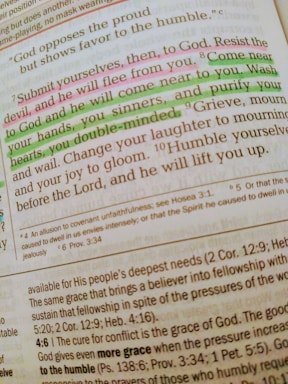 but does another
me-playing, no mask wearing,
"God opposes the proud
but shows favor to the humble."ᶜ
⁷Submit yourselves, then, to God. Resist the
devil, and he will flee from you. ⁸Come near
to God and he will come near to you. Wash
your hands, you sinners, and purify your
hearts, you double-minded. ⁹Grieve, mourn
and wail. Change your laughter to mourning
and your joy to gloom. ¹⁰Humble yourselves
before the Lord, and he will lift you up.
ᵃ 4 An allusion to covenant unfaithfulness; see Hosea 3:1. ᵇ 5 Or that the s
caused to dwell in us envies intensely; or that the Spirit he caused to dwell in u
jealously ᶜ 6 Prov. 3:34
available for His people's deepest needs (2 Cor. 12:9; Heb
The same grace that brings a believer into fellowship with
sustain that fellowship in spite of the pressures of the wo
5:20; 2 Cor. 12:9; Heb. 4:16).
4:6 | The cure for conflict is the grace of God. The good
God gives even more grace when the pressure increas
to the humble (Ps. 138:6; Prov. 3:34; 1 Pet. 5:5). Go
responsive to the prayers of those who humbly reque